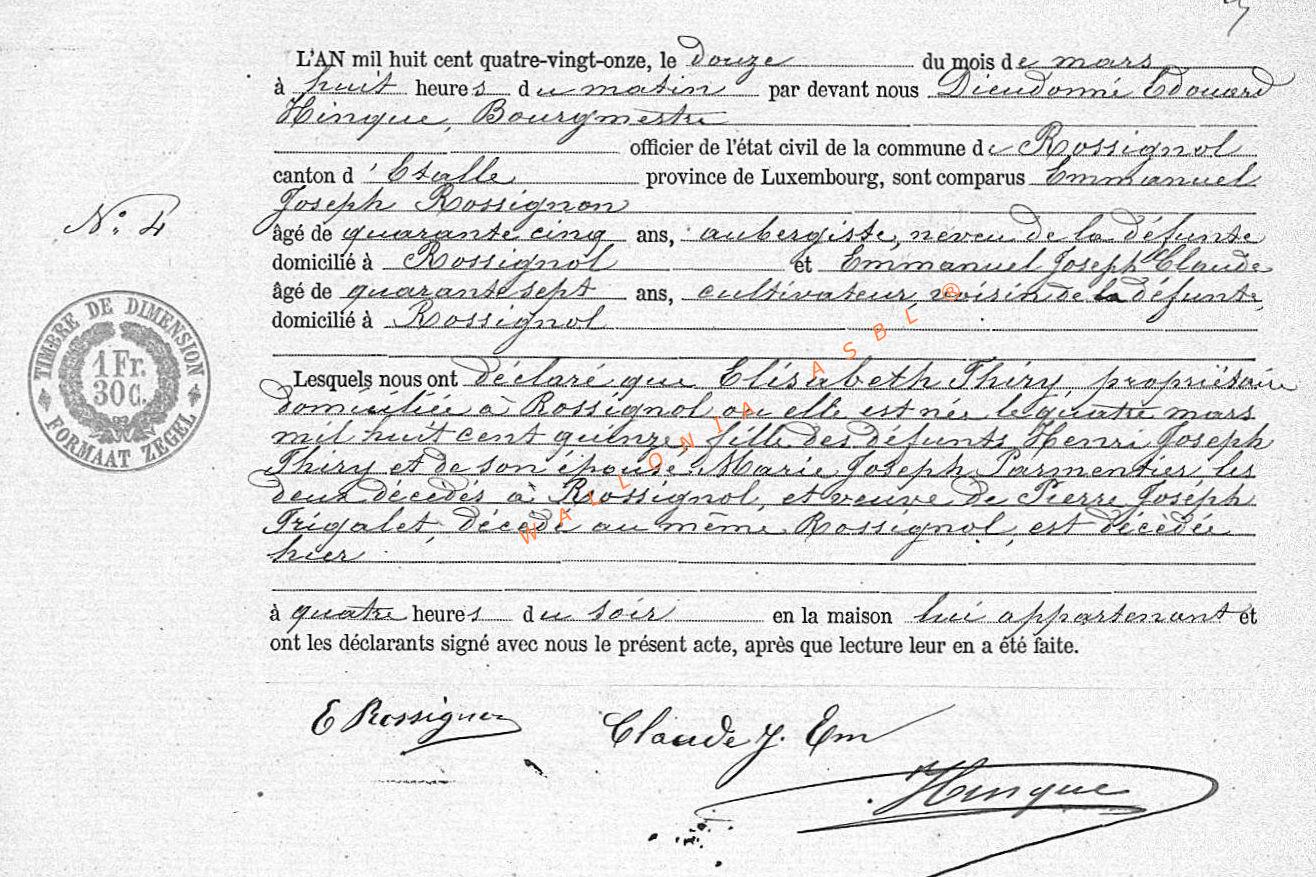 L'AN mil huit cent quatre-vingt-onze, le douze du mois de mars
à huit heures du matin par devant nous Dieudonné Edouard
Hinque, Bourgmestre
officier de l'état civil de la commune de Rossignol
canton d'Etalle province de Luxembourg, sont comparus Emmanuel
Joseph Rossignon
N° 4
âgé de quarante cinq ans, aubergiste, neveu de la défunte
domicilié à Rossignol et Emmanuel Joseph Claude
âgé de quarante sept ans, cultivateur voisin de la défunte,
domicilié à Rossignol
TIMBRE DE DIMENSION
1 Fr.
30 C.
FORMAAT ZEGEL
WALLONIA ASBL ®
Lesquels nous ont déclaré que Elisabeth Thiry, propriétaire
domiciliée à Rossignol ou elle est née le quatre mars
mil huit cent quinze, fille des défunts Henri Joseph
Thiry et de son épouse Marie Joseph Parmentier, les
deux décédés à Rossignol, et veuve de Pierre Joseph
Trigalet, décédé au même Rossignol, est décédée
hier
à quatre heures du soir en la maison lui appartenant et
ont les déclarants signé avec nous le présent acte, après que lecture leur en a été faite.
E Rossignon
Claude J. Em
Hinque